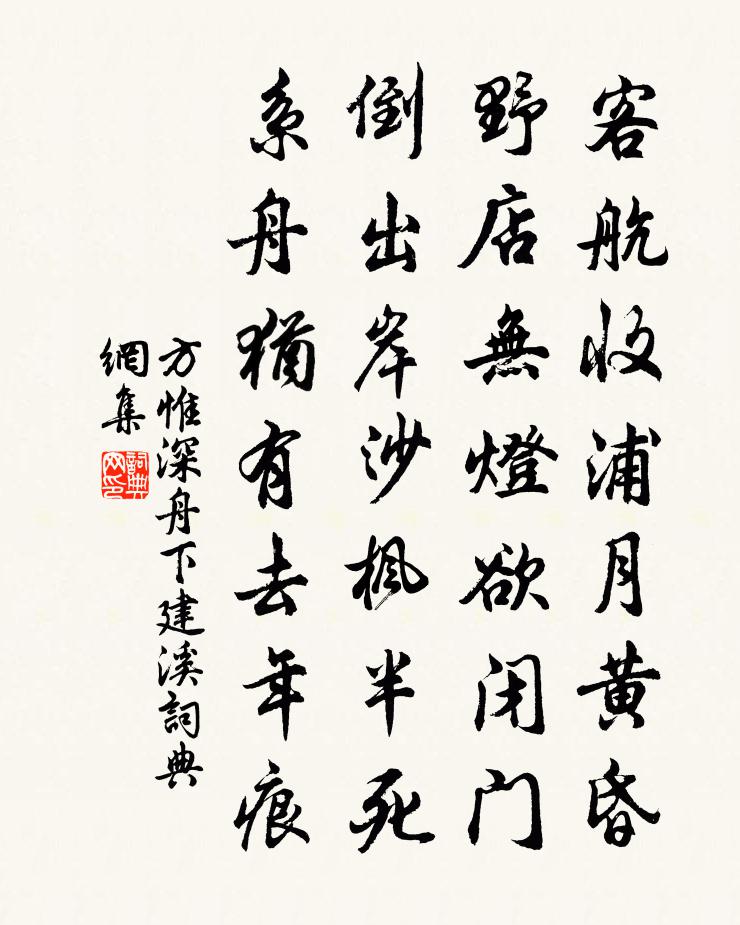 客航收浦月黄昏
野店無燈欲闭门
倒出岸沙楓半死
系舟猶有去年痕
方惟深舟下建溪詞典
網集
詞典网印